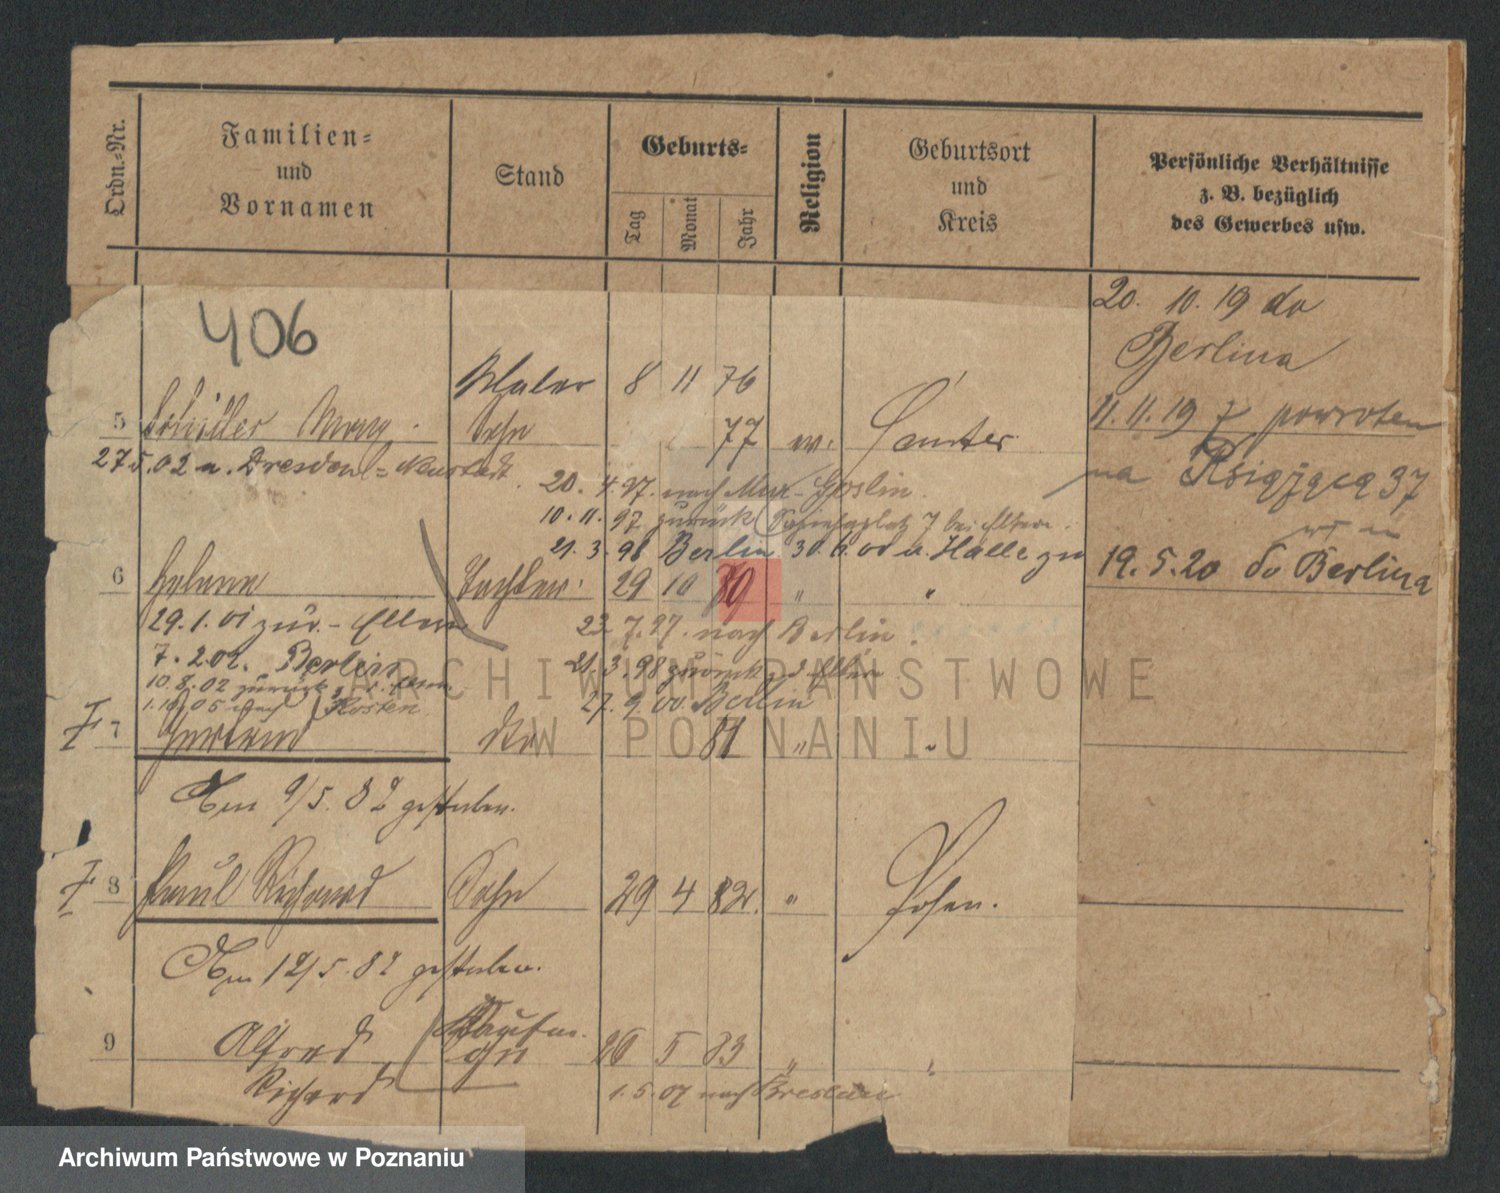 Ordn.-Nr.
Familien- und Vornamen
Stand
Geburts-
Tag
Monat
Jahr
Religion
Geburtsort und Kreis
Persönliche Verhältnisse z. B. bezüglich des Gewerbes usw.
406
20. 10. 19 do
Berlina
Maler 8 11 76
5 Schüller Sohn 77 Samter
11. 11. 19 z powrotem
na 37
27.5.02 n. Dresden-Neustadt
20. 4. 97. nach Mur-Goslin.
10. 11. 97 zurück 7 bei Eltern.
21. 3. 98 Berlin 30. 6. 00 n. Halle
6 Helene Tochter 29 10 80 " "
19. 5. 20 do Berlina
29. 1. 01 zur. - Eltern
23. 7. 97. nach Berlin.
7. 2. 02. Berlin
21. 3. 98 zurück z Eltern
10. 8. 02 zurück
1. 10. 05 nach Kosten
27. 9. 00. Berlin
7 Gertrud 81 " "
Am 9/5. 82 gestorben.
8 Paul Richard Sohn 29 4 82. " Posen.
Am 12/5. 82 gestorben.
Kaufm.
9 Alfred 26 5 83 " "
Richard
1. 5. 07 nach Breslau
ARCHIWUM PAŃSTWOWE
W POZNANIU
Archiwum Państwowe w Poznaniu